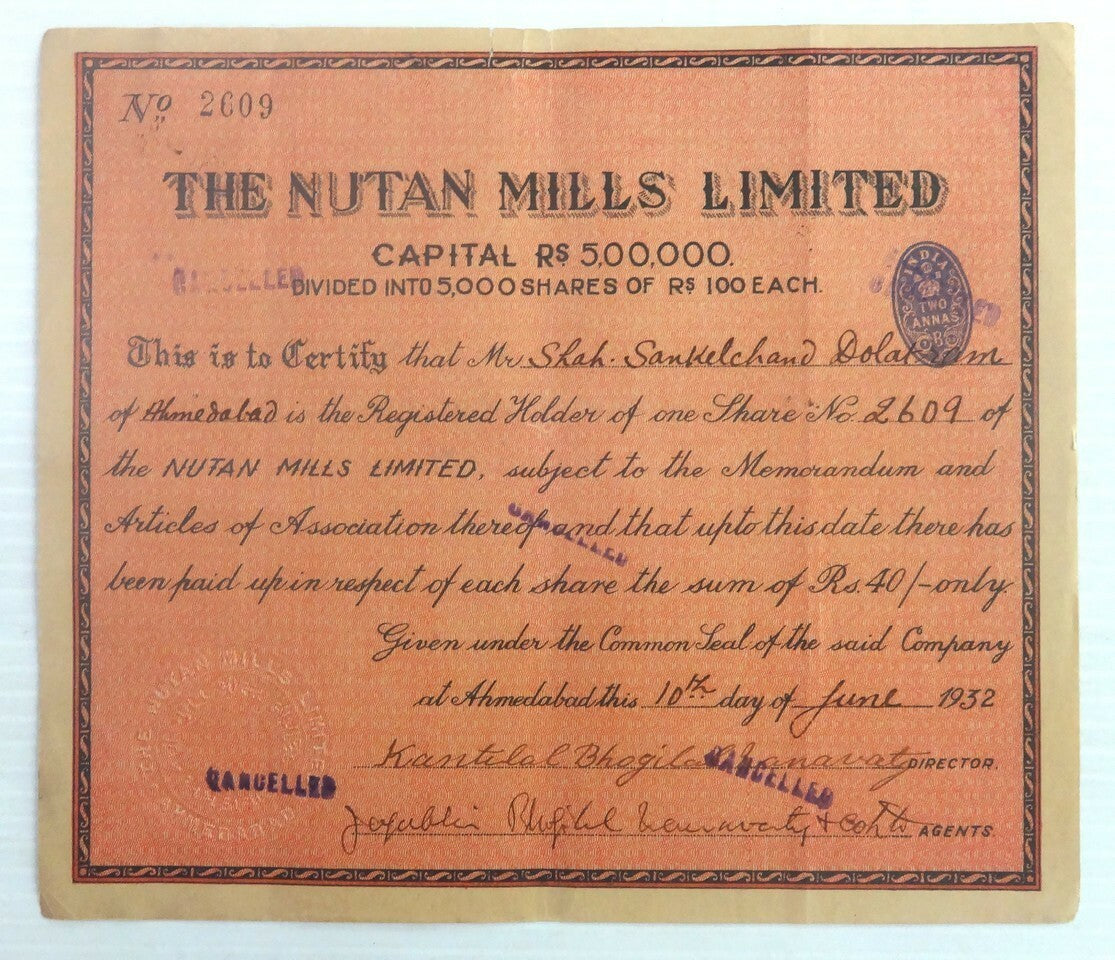 No 2609
THE NUTAN MILLS LIMITED
CAPITAL Rs 5,00,000.
DIVIDED INTO 5,000 SHARES OF Rs 100 EACH.
CANCELLED
INDIA
TWO
ANNAS
This is to Certify that Mr Shah. Sankelchand
of Ahmedabad is the Registered Holder of one Share No. 2609 of
the NUTAN MILLS LIMITED, subject to the Memorandum and
Articles of Association thereof and that upto this date there has
CANCELLED
been paid up in respect of each share the sum of Rs. 40/- only.
Given under the Common Seal of the said Company
at Ahmedabad this 10th day of June 1932
THE NUTAN MILLS LIMITED
AHMEDABAD
Kantilal DIRECTOR.
CANCELLED
CANCELLED
AGENTS.